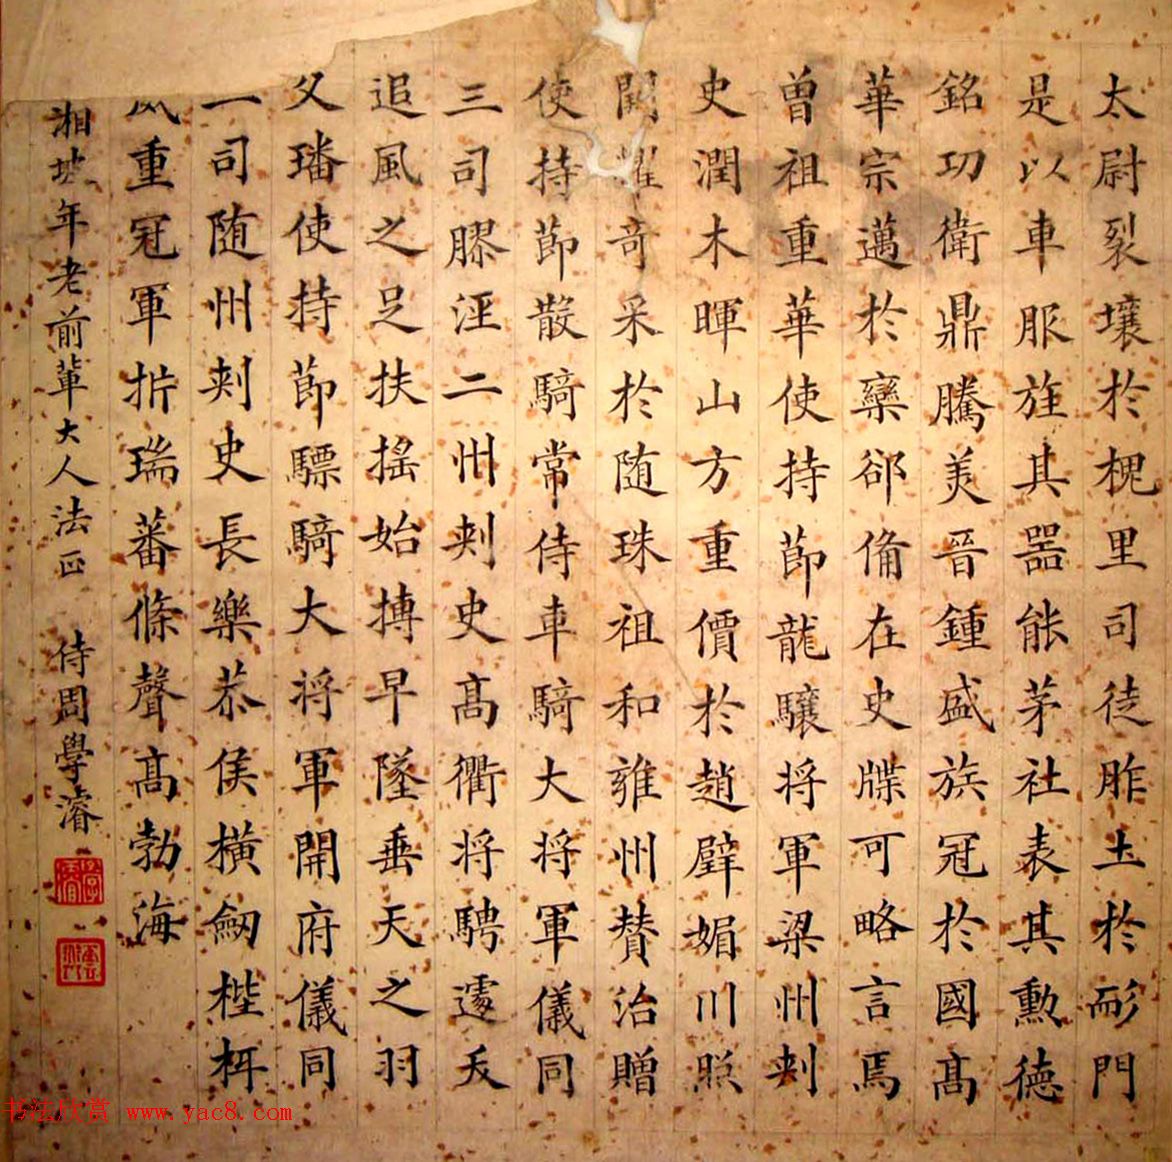 太尉裂壤於槐里司徒胙土於耏門
是以車服旌其器能茅社表其勲德
銘功衛鼎騰美晉鍾盛族冠於國髙
華宗邁於欒郤俻在史牒可略言焉
曾祖重華使持節龍驤将軍梁州刾
史潤木暉山方重價於趙璧媚川照
闕耀竒采於随珠祖和雍州賛治贈
使持節散騎常侍車騎大将軍儀同
三司膠涇二州刾史髙衢将騁遽夭
追風之足扶摇始搏早墜垂天之羽
父璠使持節驃騎大将軍開府儀同
一司随州刾史長樂恭侯橫劒梐枑
威重冠軍析瑞蕃條聲髙勃海
湘坡年老前輩大人法正 侍周學濬
书法欣赏 www.yac8.com